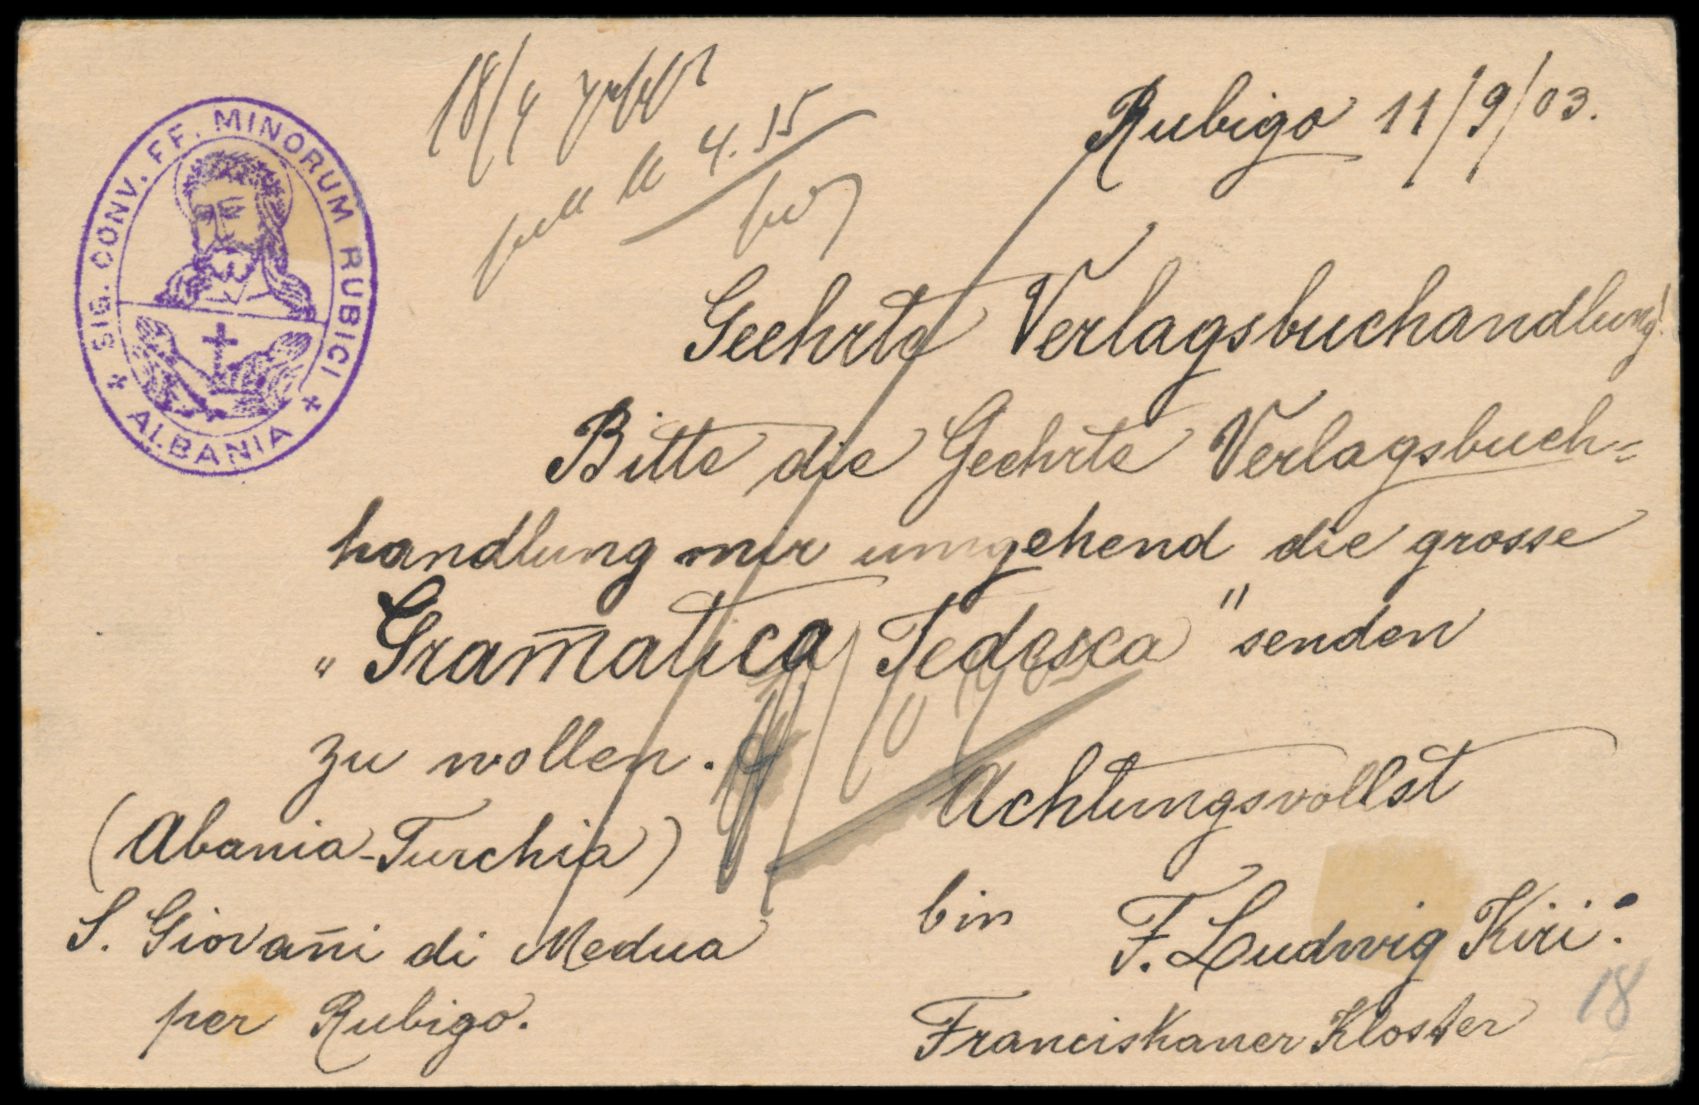 SIG. CONV. FF. MINORUM RUBICI
ALBANIA
18/9
4.15
Rubigo 11/9/03.
Geehrte Verlagsbuchandlung!
Bitte die Geehrte Verlagsbuch=
handlung mir umgehend die grosse
„Gram̄atica Tedesca" senden
zu wollen.
Achtungsvollst
(Abania-Turchia)
S. Giovan̄i di Medua
per Rubigo.
bin F. Ludwig Kiri.
Franciskaner Kloster
18